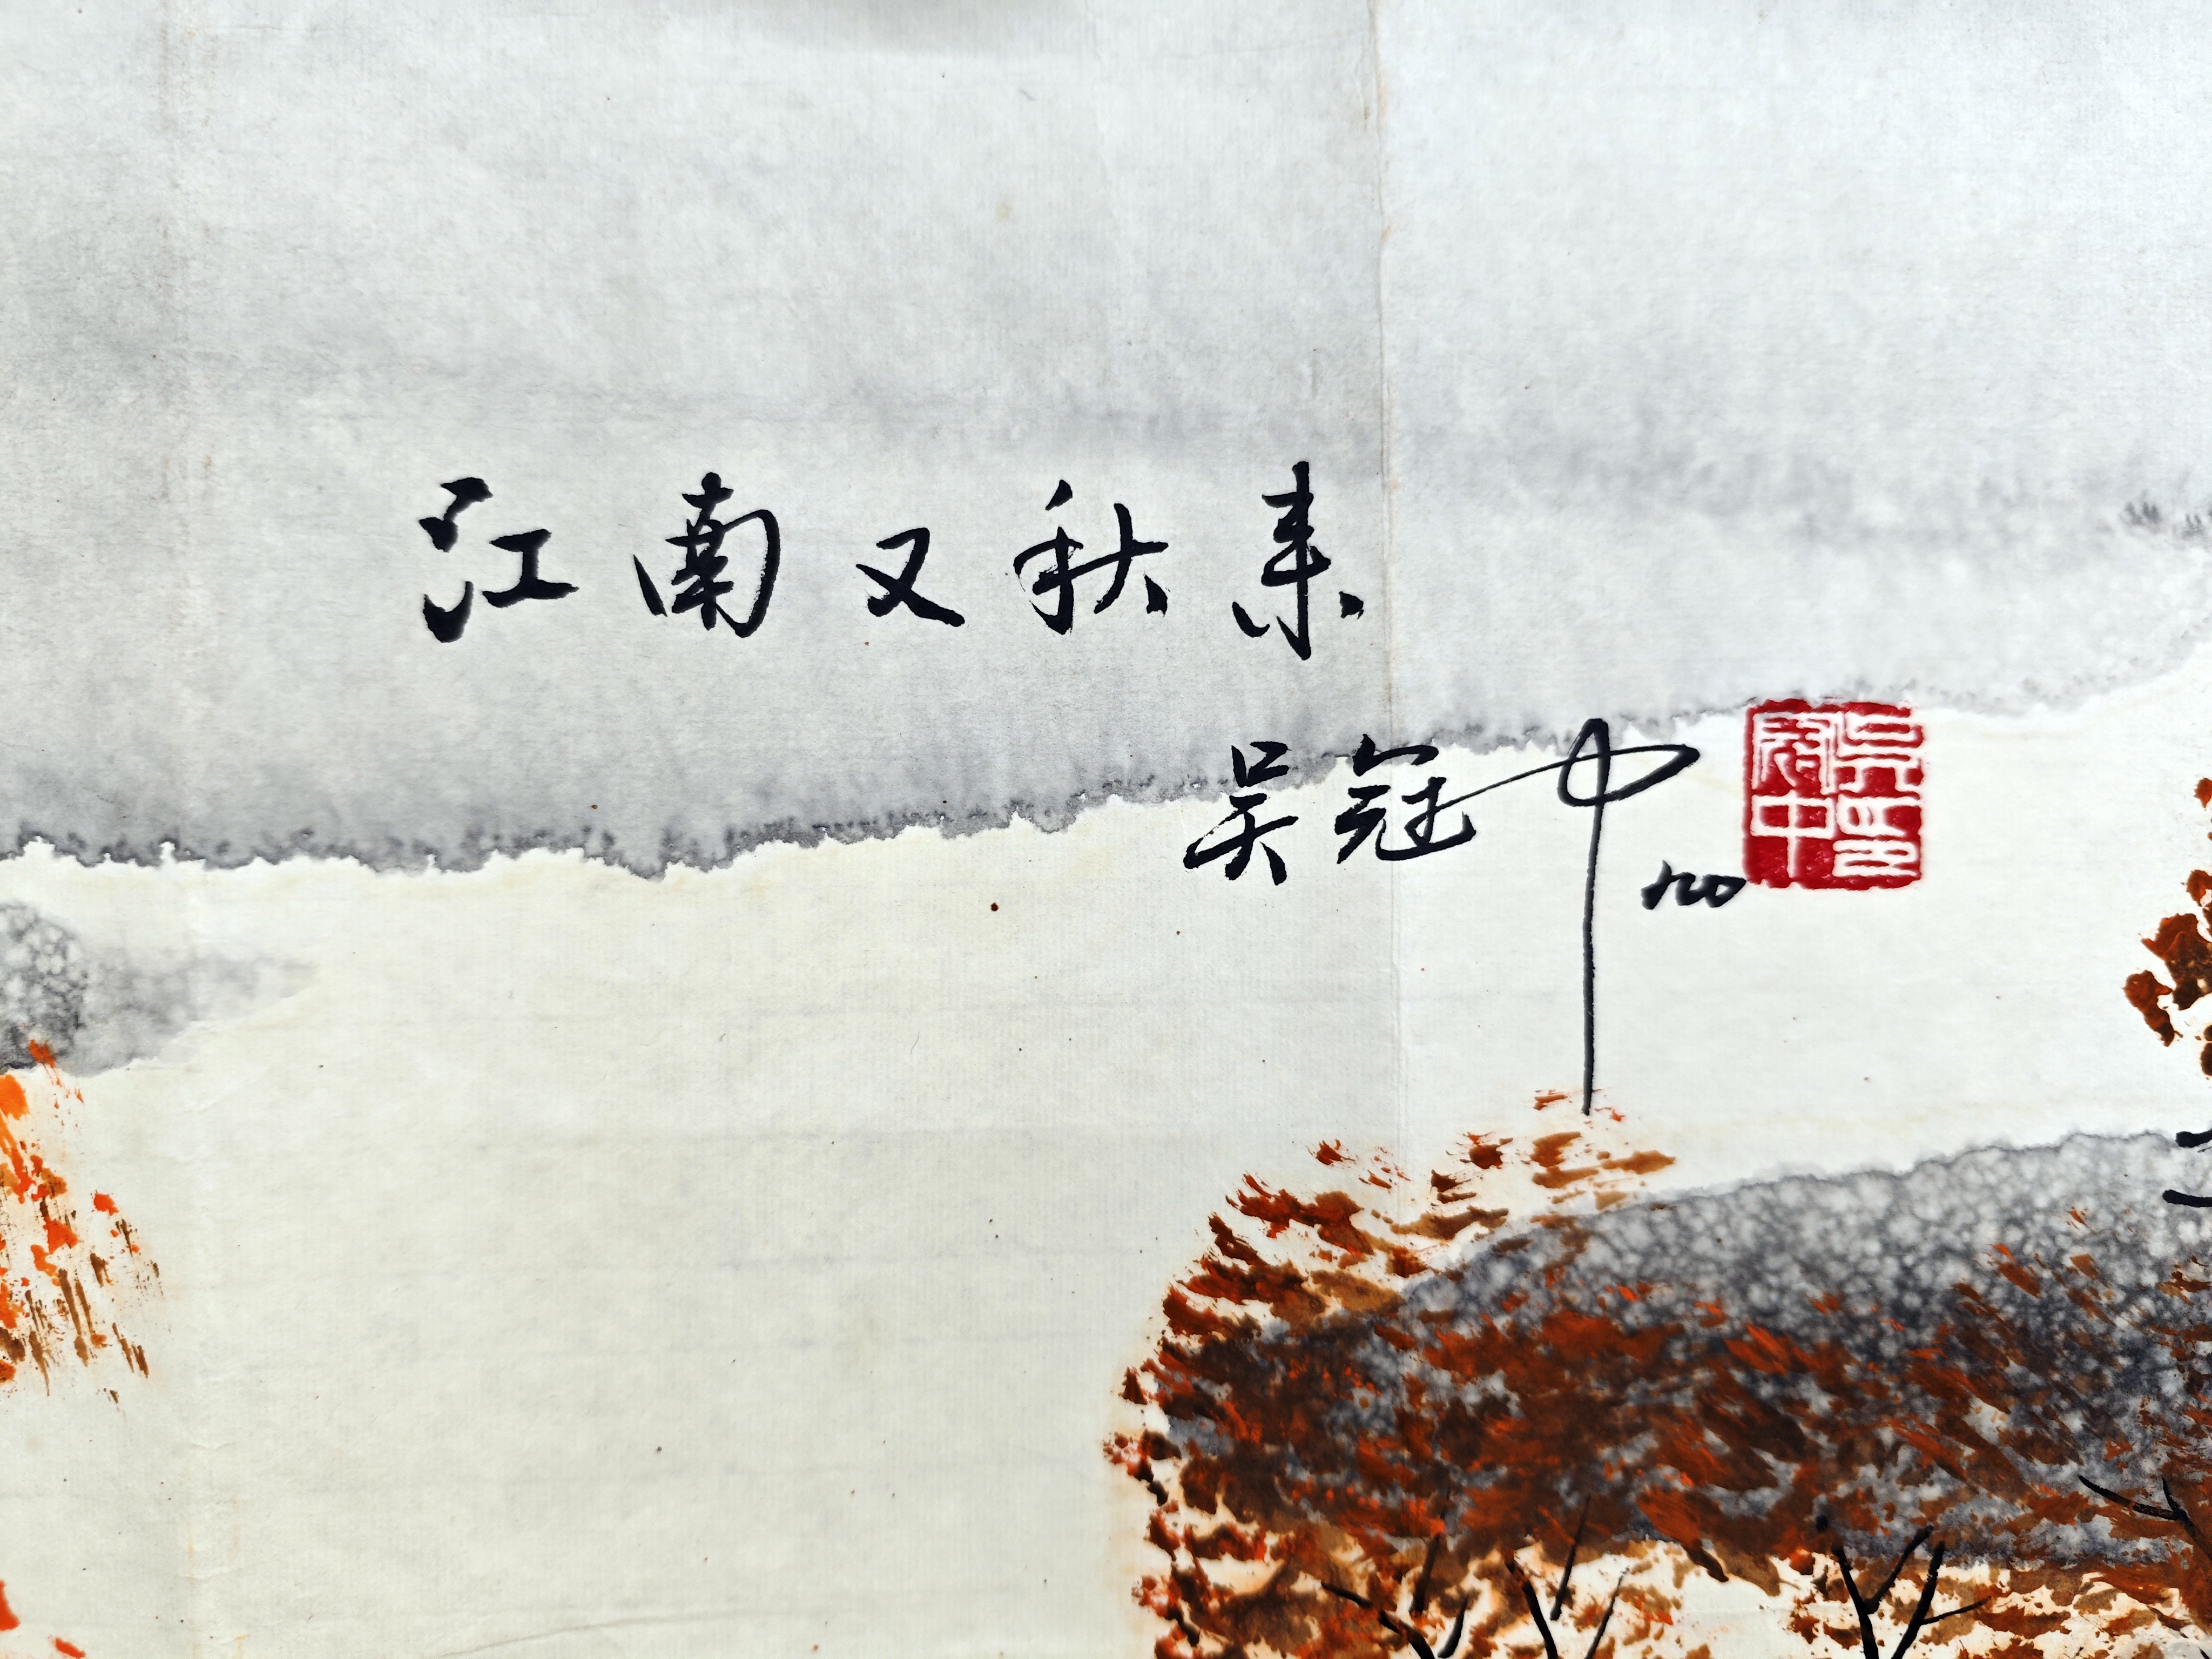 江南又秋来
吴冠中
吴冠中印